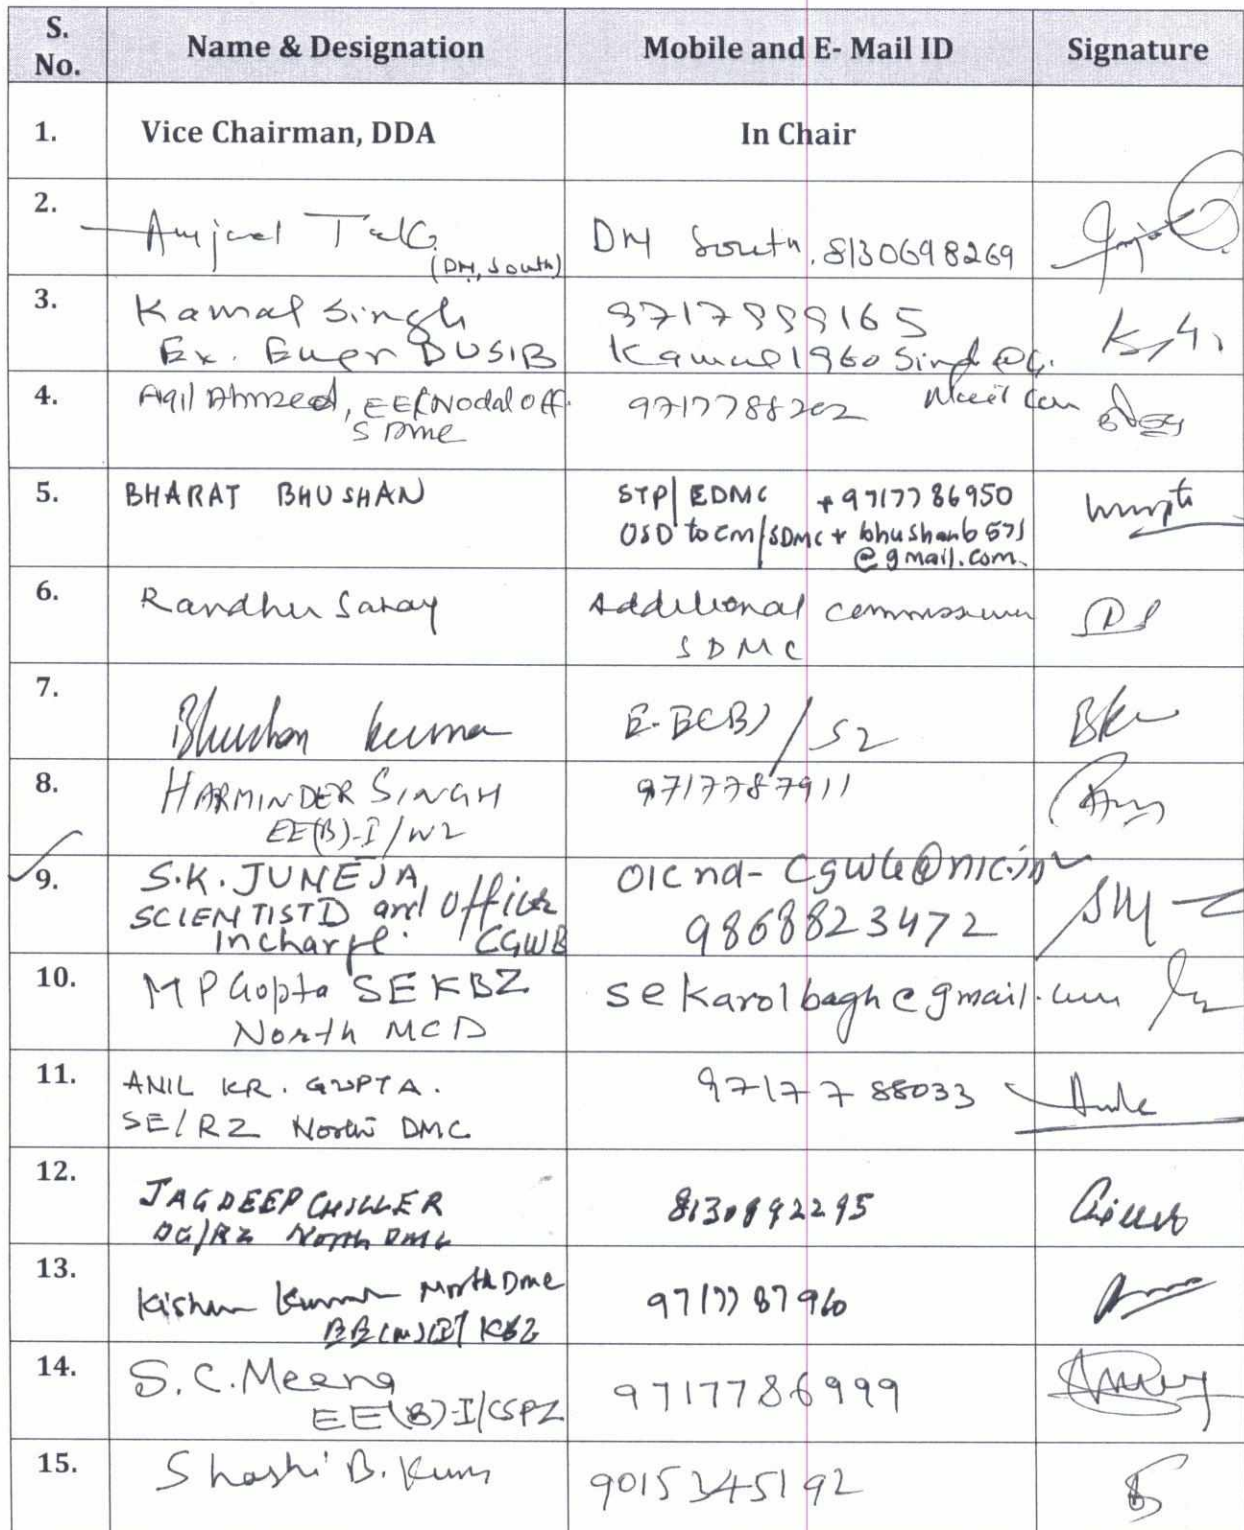 S. No.
Name & Designation
Mobile and E- Mail ID
Signature
1.
Vice Chairman, DDA
In Chair
2.
Amjad Tak
(DM, South)
DM South, 8130698269
3.
Kamal Singh
Ex. Engr DUSIB
9717999165
Kamal1960 Sind @G.
Mail Com
4.
Aqil Ahmeed, EE(Nodal Off.
SDMC
9717788202
5.
BHARAT BHUSHAN
STP/EDMC + 9717786950
OSD to Cm/SDMC + bhushanb571
@gmail.com.
6.
Randhir Sahay
Additional Commissioner
SDMC
7.
Bhushan Kumar
E.E(B)/S2
8.
HARMINDER SINGH
EE(B)-I/WZ
9717787911
9.
S.K. JUNEJA
SCIENTIST D and Officer
Incharge. CGWB
oicnd-cgwb@nic.in
9868823472
10.
M P Gupta SE KBZ
North MCD
sekarolbagh@gmail.com
11.
ANIL KR. GUPTA.
SE/RZ North DMC
9717788033
12.
JAGDEEP CHILLER
/RZ North DMC
8130992295
13.
Kishan Kumar North DMC
KBZ
9717787960
14.
S.C. Meena
EE(B)-I/CSPZ
9717786999
15.
Shashi B. Kum
9015345192